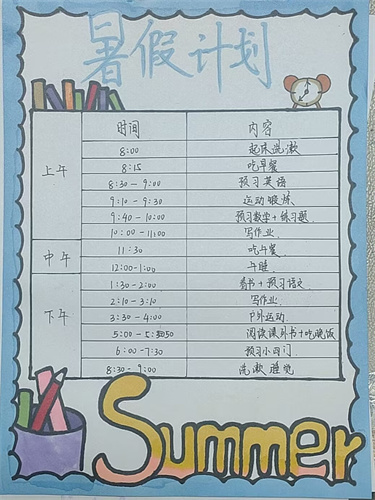 暑假计划
时间 内容
上午
8:00 起床洗漱
8:15 吃早餐
8:30 - 9:00 预习英语
9:10 - 9:30 运动锻炼
9:40 - 10:00 预习数学+练习题
10:00 - 11:00 写作业
中午
11:30 吃午餐
12:00-1:00 午睡
下午
1:30 - 2:00 看书+预习语文
2:10 - 3:10 写作业
3:30 - 4:00 户外运动
5:00 - 阅读课外书+吃晚饭
6:00 - 7:30 预习小四门
8:30 - 9:00 洗漱 睡觉
Summer